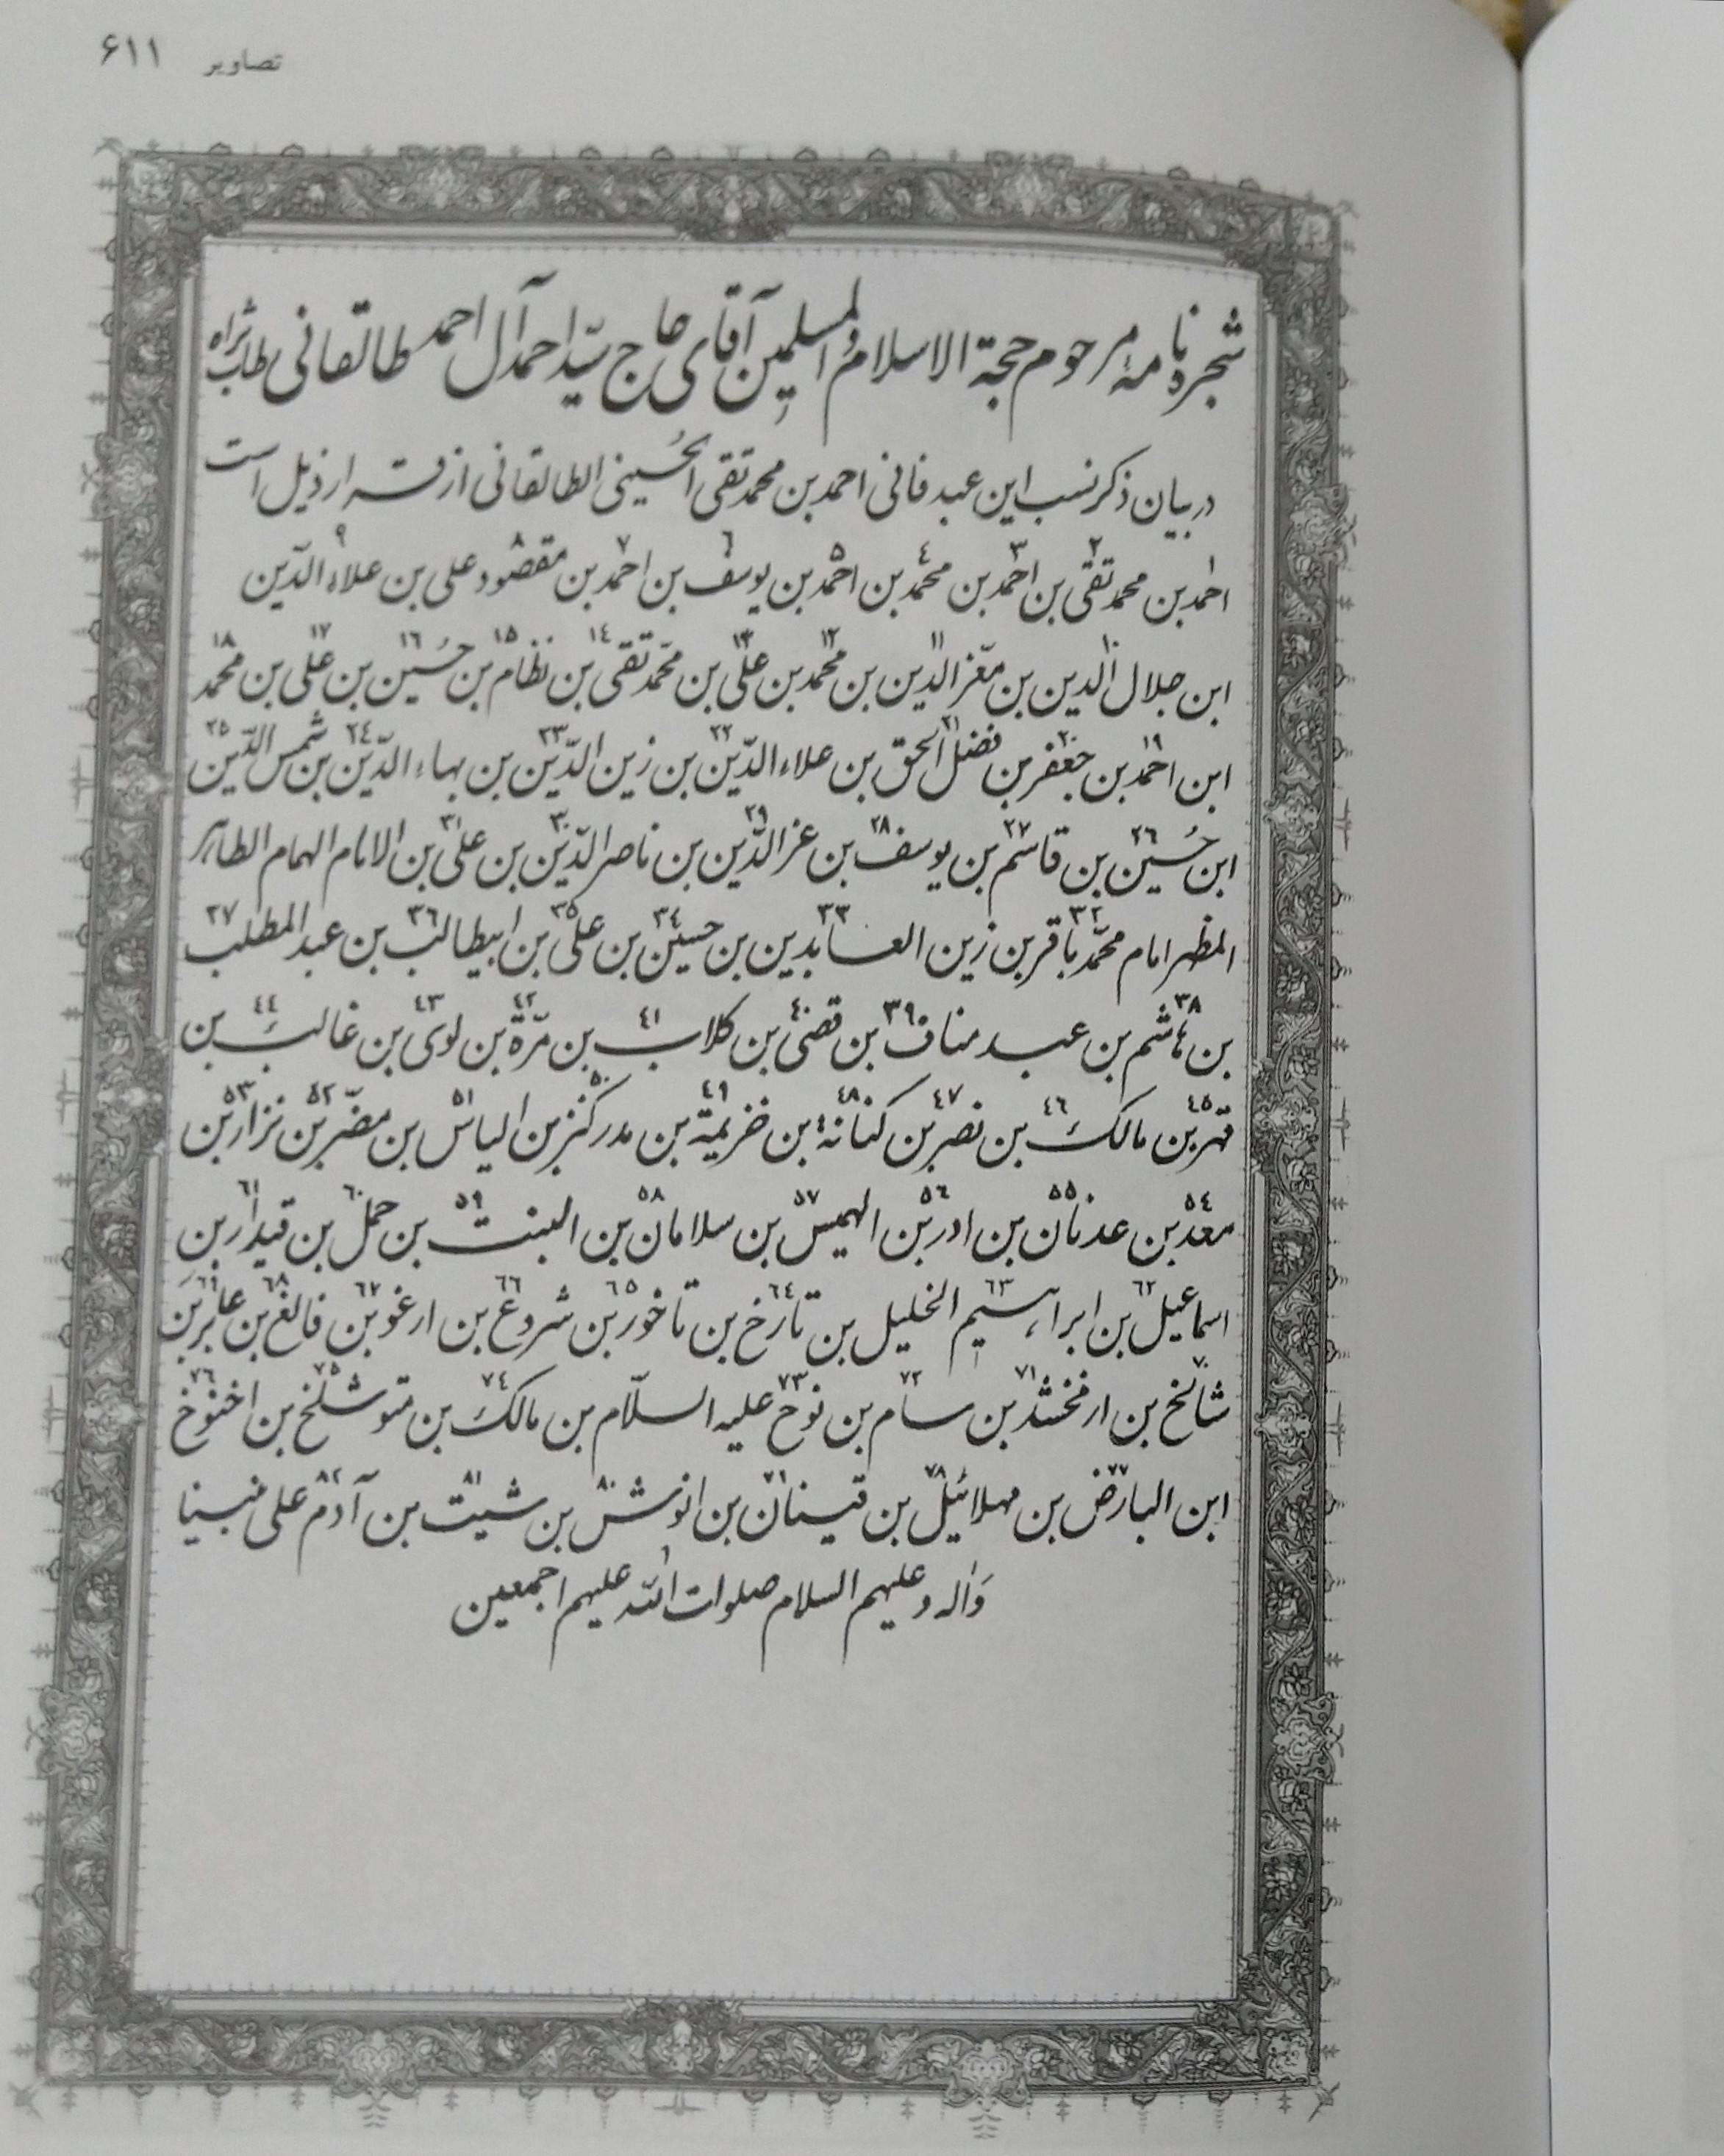 تصاویر ۶۱۱
شجره‌نامهٔ مرحوم حجة الاسلام والمسلمین آقای حاج سیّد احمد آل احمد طالقانی طاب ثراه
در بیان ذکر نسب این عبد فانی احمد بن محمد تقی الحُسینی الطالقانی از قرار ذیل است
احمد۱ بن محمد تقی۲ بن احمد۳ بن محمد۴ بن احمد۵ بن یوسف۶ بن احمد۷ بن مقصود۸ علی بن علاء الدّین۹
ابن جلال الدین۱۰ بن معّز الدین۱۱ بن محمد۱۲ بن علی۱۳ بن محمّد تقی۱۴ بن نظام۱۵ بن حُسین۱۶ بن علی۱۷ بن محمد۱۸
ابن احمد۱۹ بن جعفر۲۰ بن فضل الحق۲۱ بن علاء الدّین۲۲ بن زین الدّین۲۳ بن بهاء الدّین۲۴ بن شمس الدّین۲۵
ابن حُسین۲۶ بن قاسم۲۷ بن یوسف۲۸ بن عز الدّین۲۹ بن ناصر الدّین۳۰ بن علی۳۱ بن الامام الهمام الطاهر
المطهر امام محمّد باقر۳۲ بن زین العابدین۳۳ بن حسین۳۴ بن علی۳۵ بن ابیطالب۳۶ بن عبد المطلب۳۷
بن هاشم۳۸ بن عبد مناف۳۹ بن قصی۴۰ بن کلاب۴۱ بن مرّة۴۲ بن لوی۴۳ بن غالب۴۴ بن
فهر۴۵ بن مالک۴۶ بن نصر۴۷ بن کنانة۴۸ بن خزیمة۴۹ بن مدرکة۵۰ بن الیاس۵۱ بن مضّر۵۲ بن نزار۵۳ بن
معد۵۴ بن عدنان۵۵ بن ادر۵۶ بن الهمیس۵۷ بن سلامان۵۸ بن البنت۵۹ بن حمل۶۰ بن قیدار۶۱ بن
اسماعیل۶۲ بن ابراهیم۶۳ الخلیل بن تارخ۶۴ بن تاخور۶۵ بن شروع۶۶ بن ارغو۶۷ بن فالغ۶۸ بن عابر۶۹ بن
شالخ۷۰ بن ارفخشد۷۱ بن سام۷۲ بن نوح۷۳ علیه السلّام بن مالک۷۴ بن متوشلخ۷۵ بن اخنوخ۷۶
ابن البارض۷۷ بن مهلائیل۷۸ بن قینان۷۹ بن انوش۸۰ بن شیث۸۱ بن آدم۸۲ علی نبینا
وَآله و علیهم السلام صلوات الله علیهم اجمعین